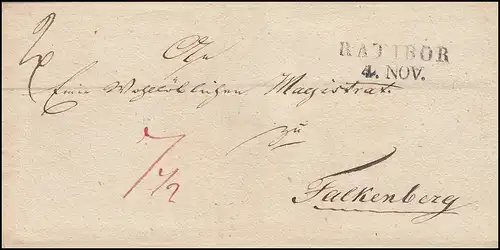 RATIBOR
4. NOV.
An
Einen Wohllöblichen Magistrat.
zu
Falkenberg
7 1/2